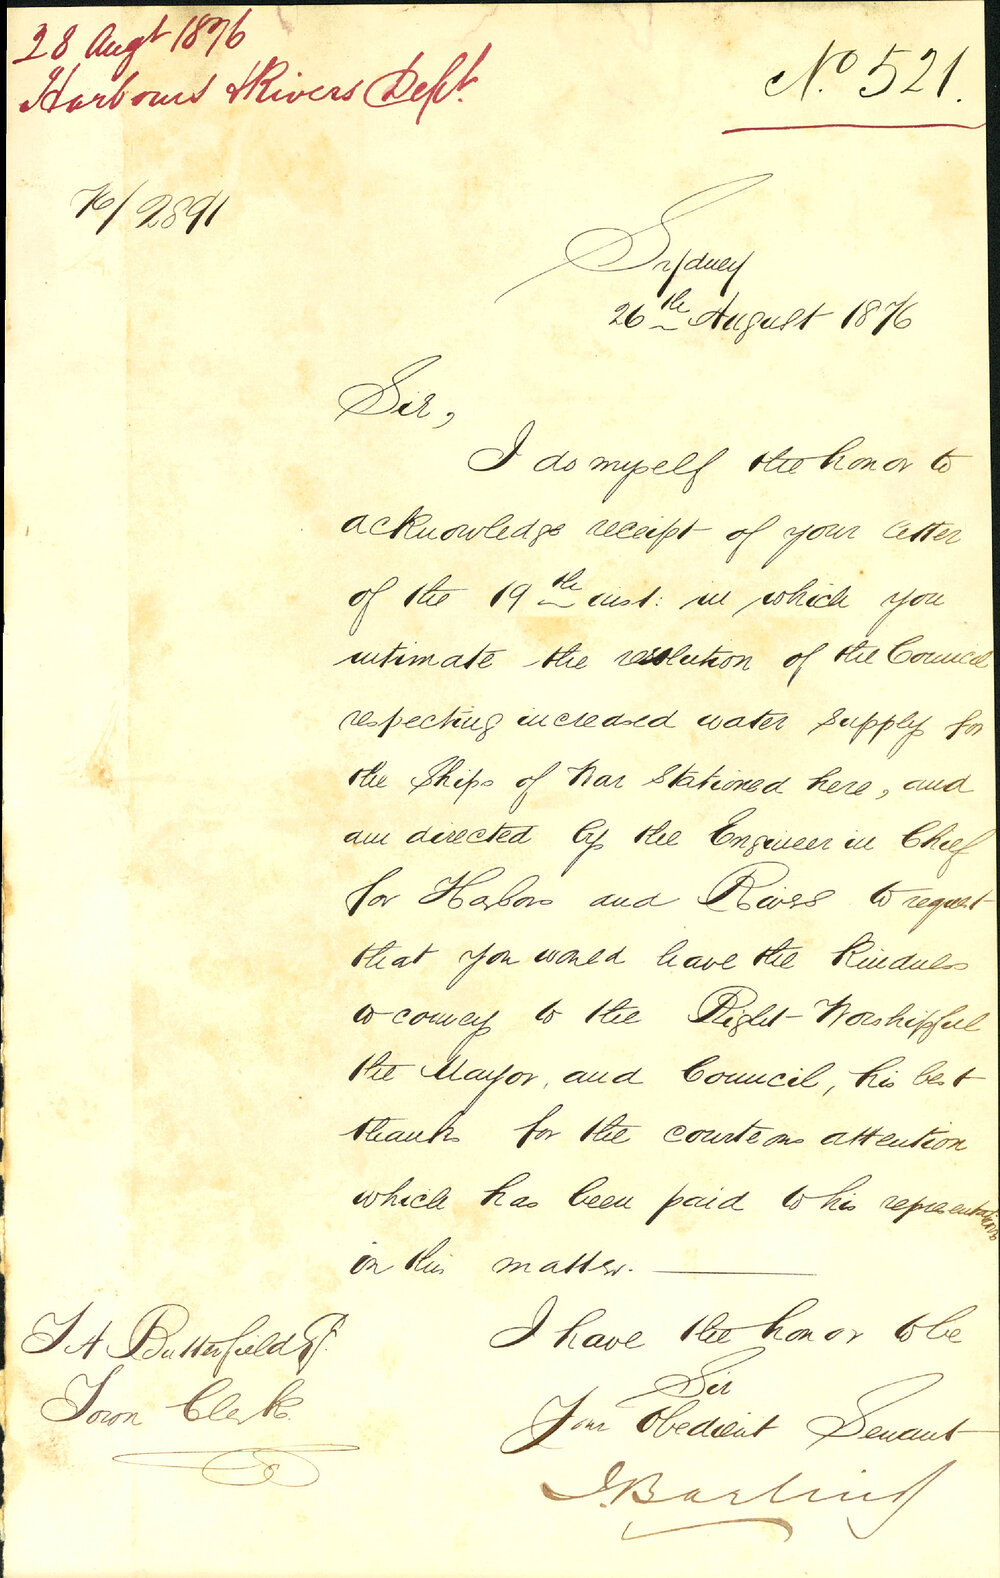 28 Augt 1876
Harbours & Rivers Dept.
No. 521.
76/2891
Sydney
26th August 1876
Sir,
I do myself the honor to
acknowledge receipt of your letter
of the 19th inst: in which you
intimate the resolution of the Council
respecting increased water supply for
the Ships of War stationed here, and
am directed by the Engineer in Chief
for Harbors and Rivers to request
that you would have the kindness
to convey to the Right Worshipful
the Mayor, and Council, his best
thanks for the courteous attention
which has been paid to his representations
in this matter.
I have the honor to be
Sir
Your Obedient Servant
J. Barling
Butterfield
Town Clerk